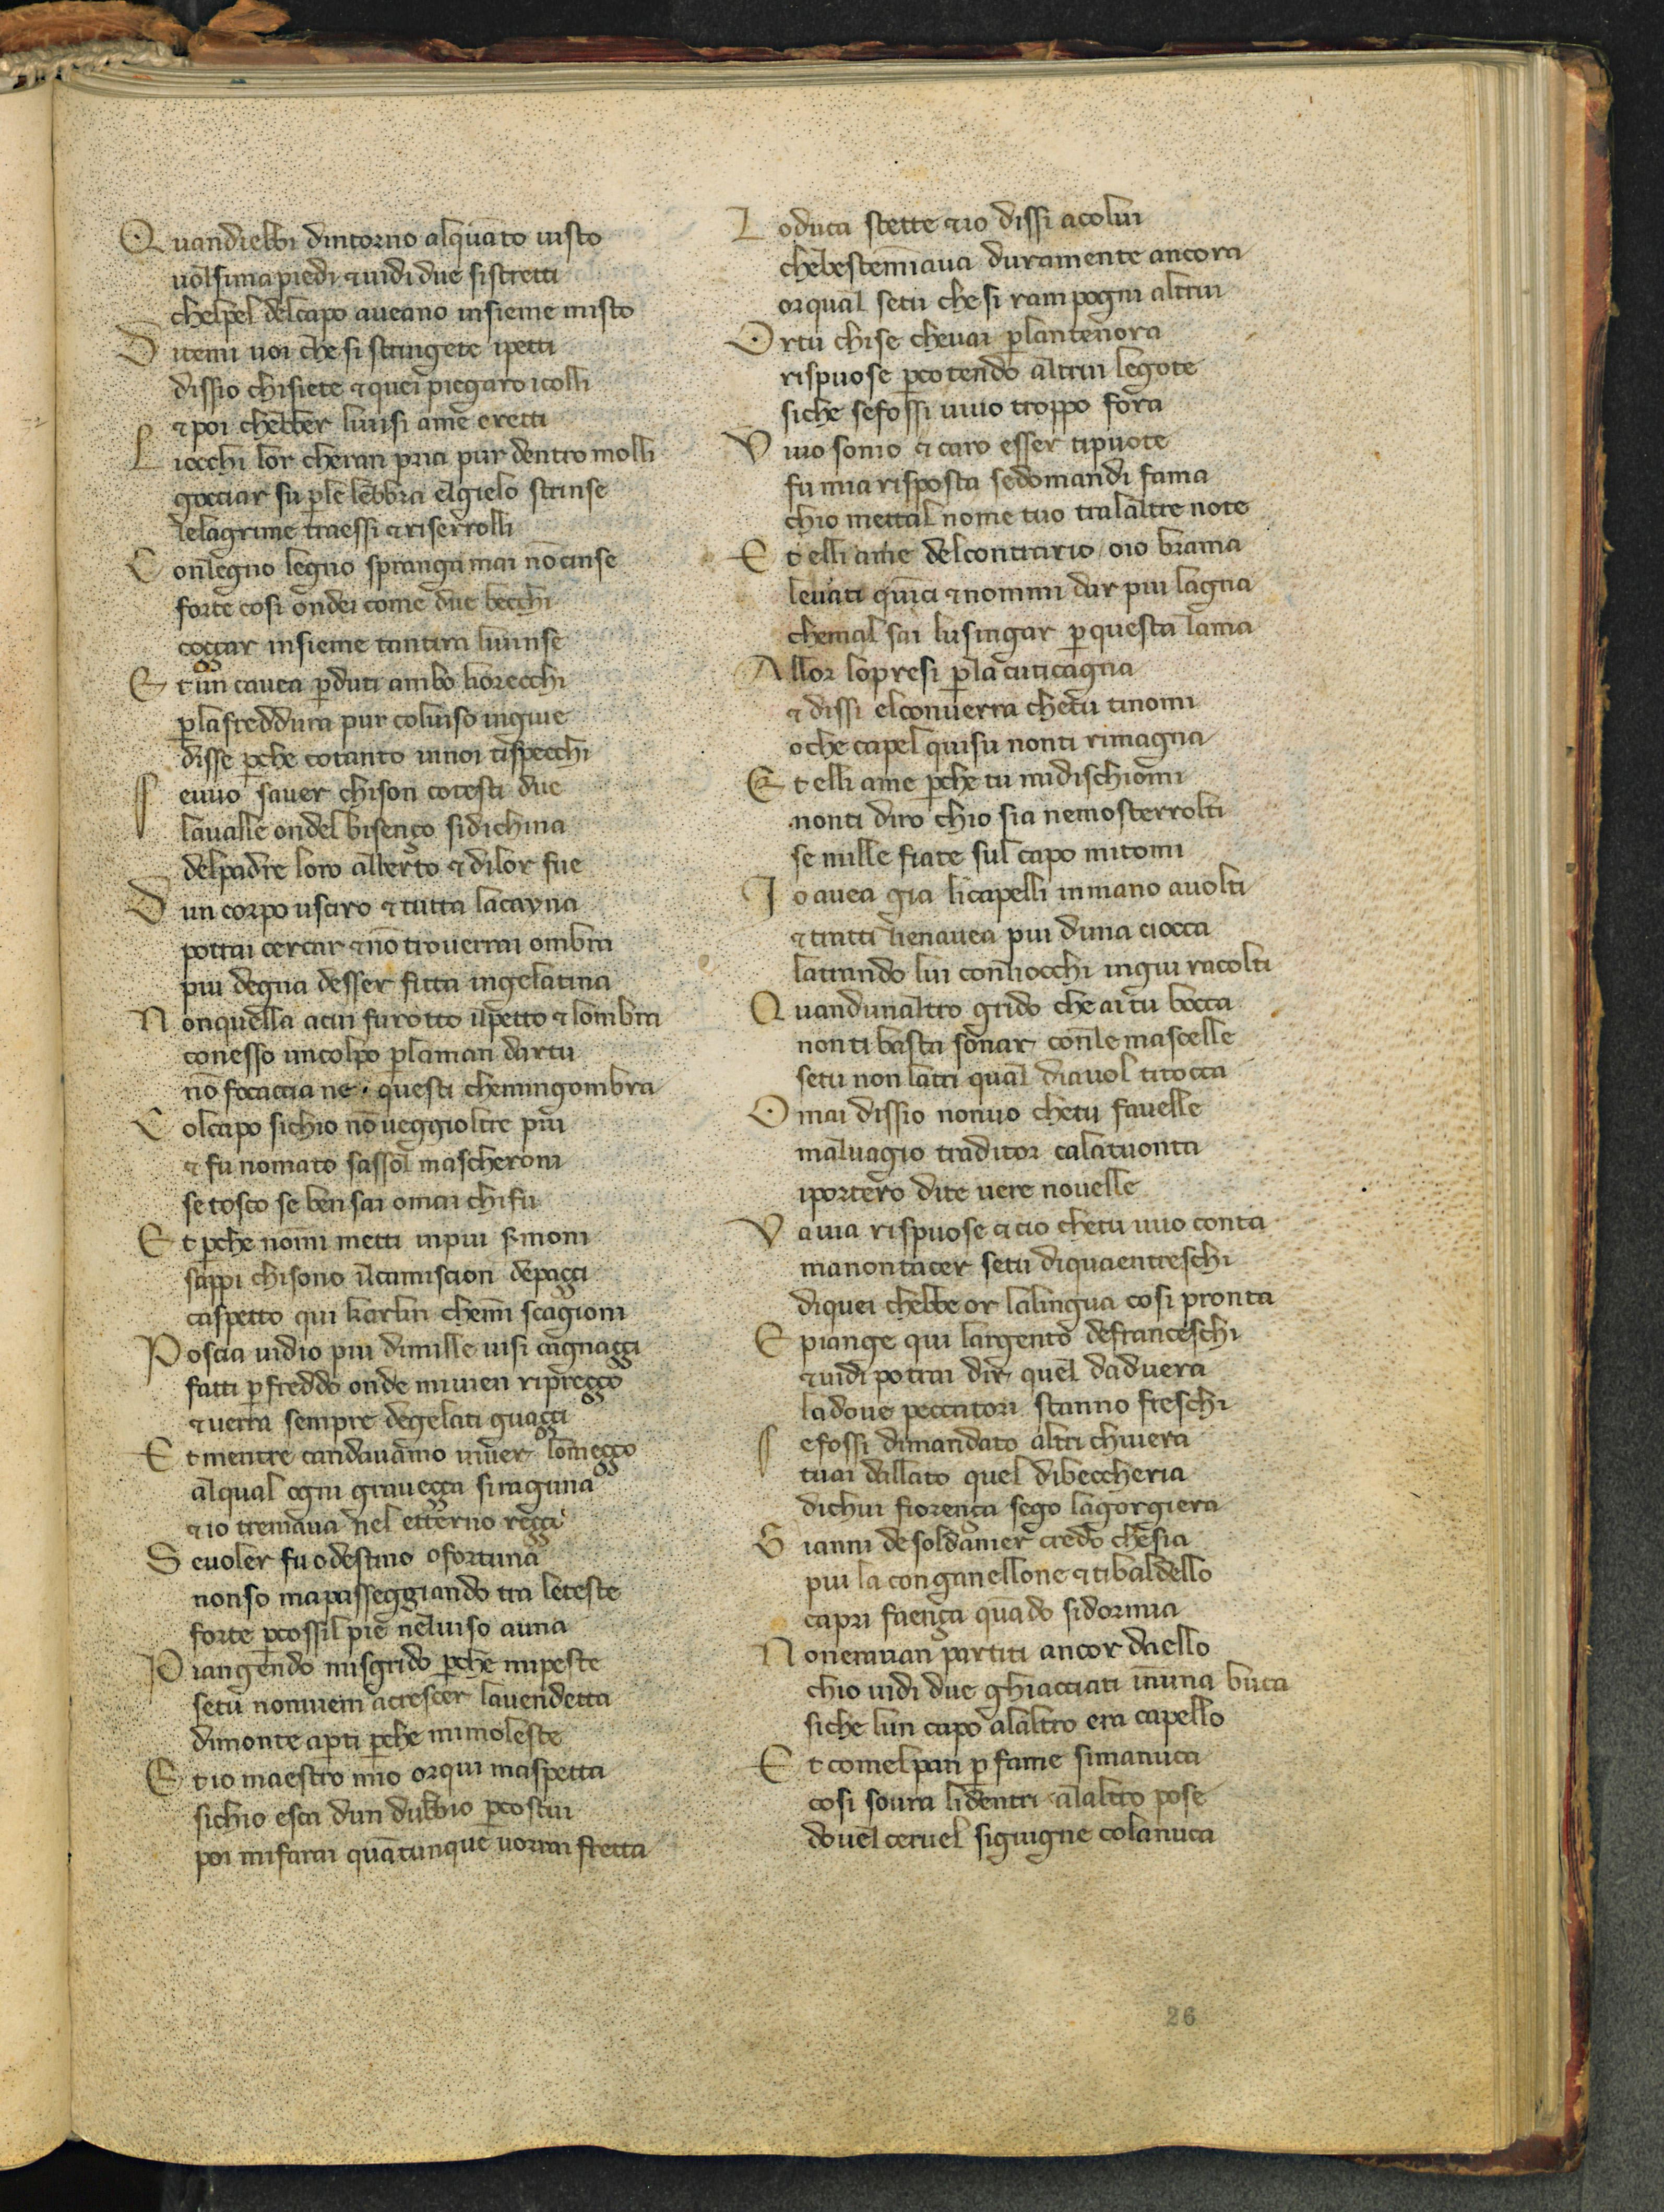 Quandiebbi dintorno alquãto uisto
uolsimapiedi ⁊uidi due sistretti
chelpel delcapo aueano insieme misto
Ditemi uoi che si stringete ipetti
dissio chisiete ⁊quei piegaro icolli
⁊poi chebber liuisi amẽ eretti
Liocchi lor cheran pria pur dentro molli
gocciar su ple lebbra elgielo strinse
lelagrime traessi ⁊riserrolli
Conlegno legno spranga mai nõ cinse
forte cosi ondei come due becchi
coççar insieme tantira liuinse
Et un cauea pduti ambo liorecchi
plafreddura pur coluiso ingiue
disse pche cotanto innoi tispecchi
Seuuo sauer chison cotesti due
laualle ondel bisenço sidichina
delpadre loro alberto ⁊ dilor fue
Dun corpo usciro ⁊tutta lacayna
potrai cercar ⁊nõ trouerrai ombra
piu degna desser fitta ingelatina
Nonquella acui furotto ilpetto ⁊lombra
conesso uncolpo plaman dartu
nõ focaccia ne · questi chemingombra
Colcapo sichio nõ ueggioltre piu
⁊ fu nomato sassol mascheroni
se tosco se ben sai omai chi fu
Et pche nomi metti inpiu smoni
sappi chisono ilcamiscion depaçci
caspetto qui karlin chemi scagioni
Poscia uidio piu dimille uisi cagnaççi
fatti p freddo onde miuien ripreçço
⁊uerra sempre degelati guaççi
Et mentre candauamo inuer lomeçço
alqual ogni graueçça siraguna
⁊io tremaua nel etterno reççi
Seuoler fu o destino o fortuna
nonso mapasseggiando tra leteste
forte pcossil pie neluiso auna
Piangendo misgrido pche mipeste
setu nonuieni acrescer lauendetta
dimonte apti pche mimoleste
Et io maestro mio orqui maspetta
sichio esca dun dubbio pcostui
poi mifarai quãtunque uorrai fretta
Loduca stette ⁊io dissi acolui
chebestemiaua duramente ancora
orqual setu che si rampogni altrui
Ortu chise cheuai plantenora
rispuose pcotendo altrui legote
siche sefossi uiuo troppo fora
Viuo sonio ⁊ caro esser tipuote
fu mia risposta sedomandi fama
chio mettal nome tuo tralaltre note
Et elli ame delcontrario oio brama
leuati quici ⁊nommi dar piu lagna
chemal sai lusingar pquesta lama
Allor lopresi pla cuticagna
⁊ dissi elconuerra chetu tinomi
oche capel quisu nonti rimagna
Et elli ame pche tu midischiomi
nonti diro chio sia nemosterrolti
se mille fiate sul capo mitomi
Io auea gia licapelli inmano auolti
⁊tratti lienauea piu duna ciocca
latrando lui conliocchi ingiu racolti
Quandunaltro grido che aitu bocca
nonti basta sonar conle mascelle
setu non latri qual diauol titocca
Omai dissio nonuo chetu fauelle
maluagio traditor calatuonta
iportero dite uere nouelle
Vauia rispuose ⁊cio chetu uuo conta
manontacer setu diquaentreschi
diquei chebbe or lalingua cosi pronta
E piange qui largento defranceschi
⁊uidi potrai dir quel daduera
ladoue peccatori stanno freschi
Sefossi dimandato altri chiuera
tuai dallato quel dibeccheria
dichui fiorença sego lagorgiera
Gianni desoldanier credo chesia
piu la conganellone ⁊tibaldello
capri faença quãdo sidormia
Nonerauan partiti ancor daello
chio uidi due ghiacciati iñuna buca
siche lun capo alaltro era capello
Et comelpan p fame simanuca
cosi soura lidentri alaltro pose
douel ceruel sigiugne colanuca
26